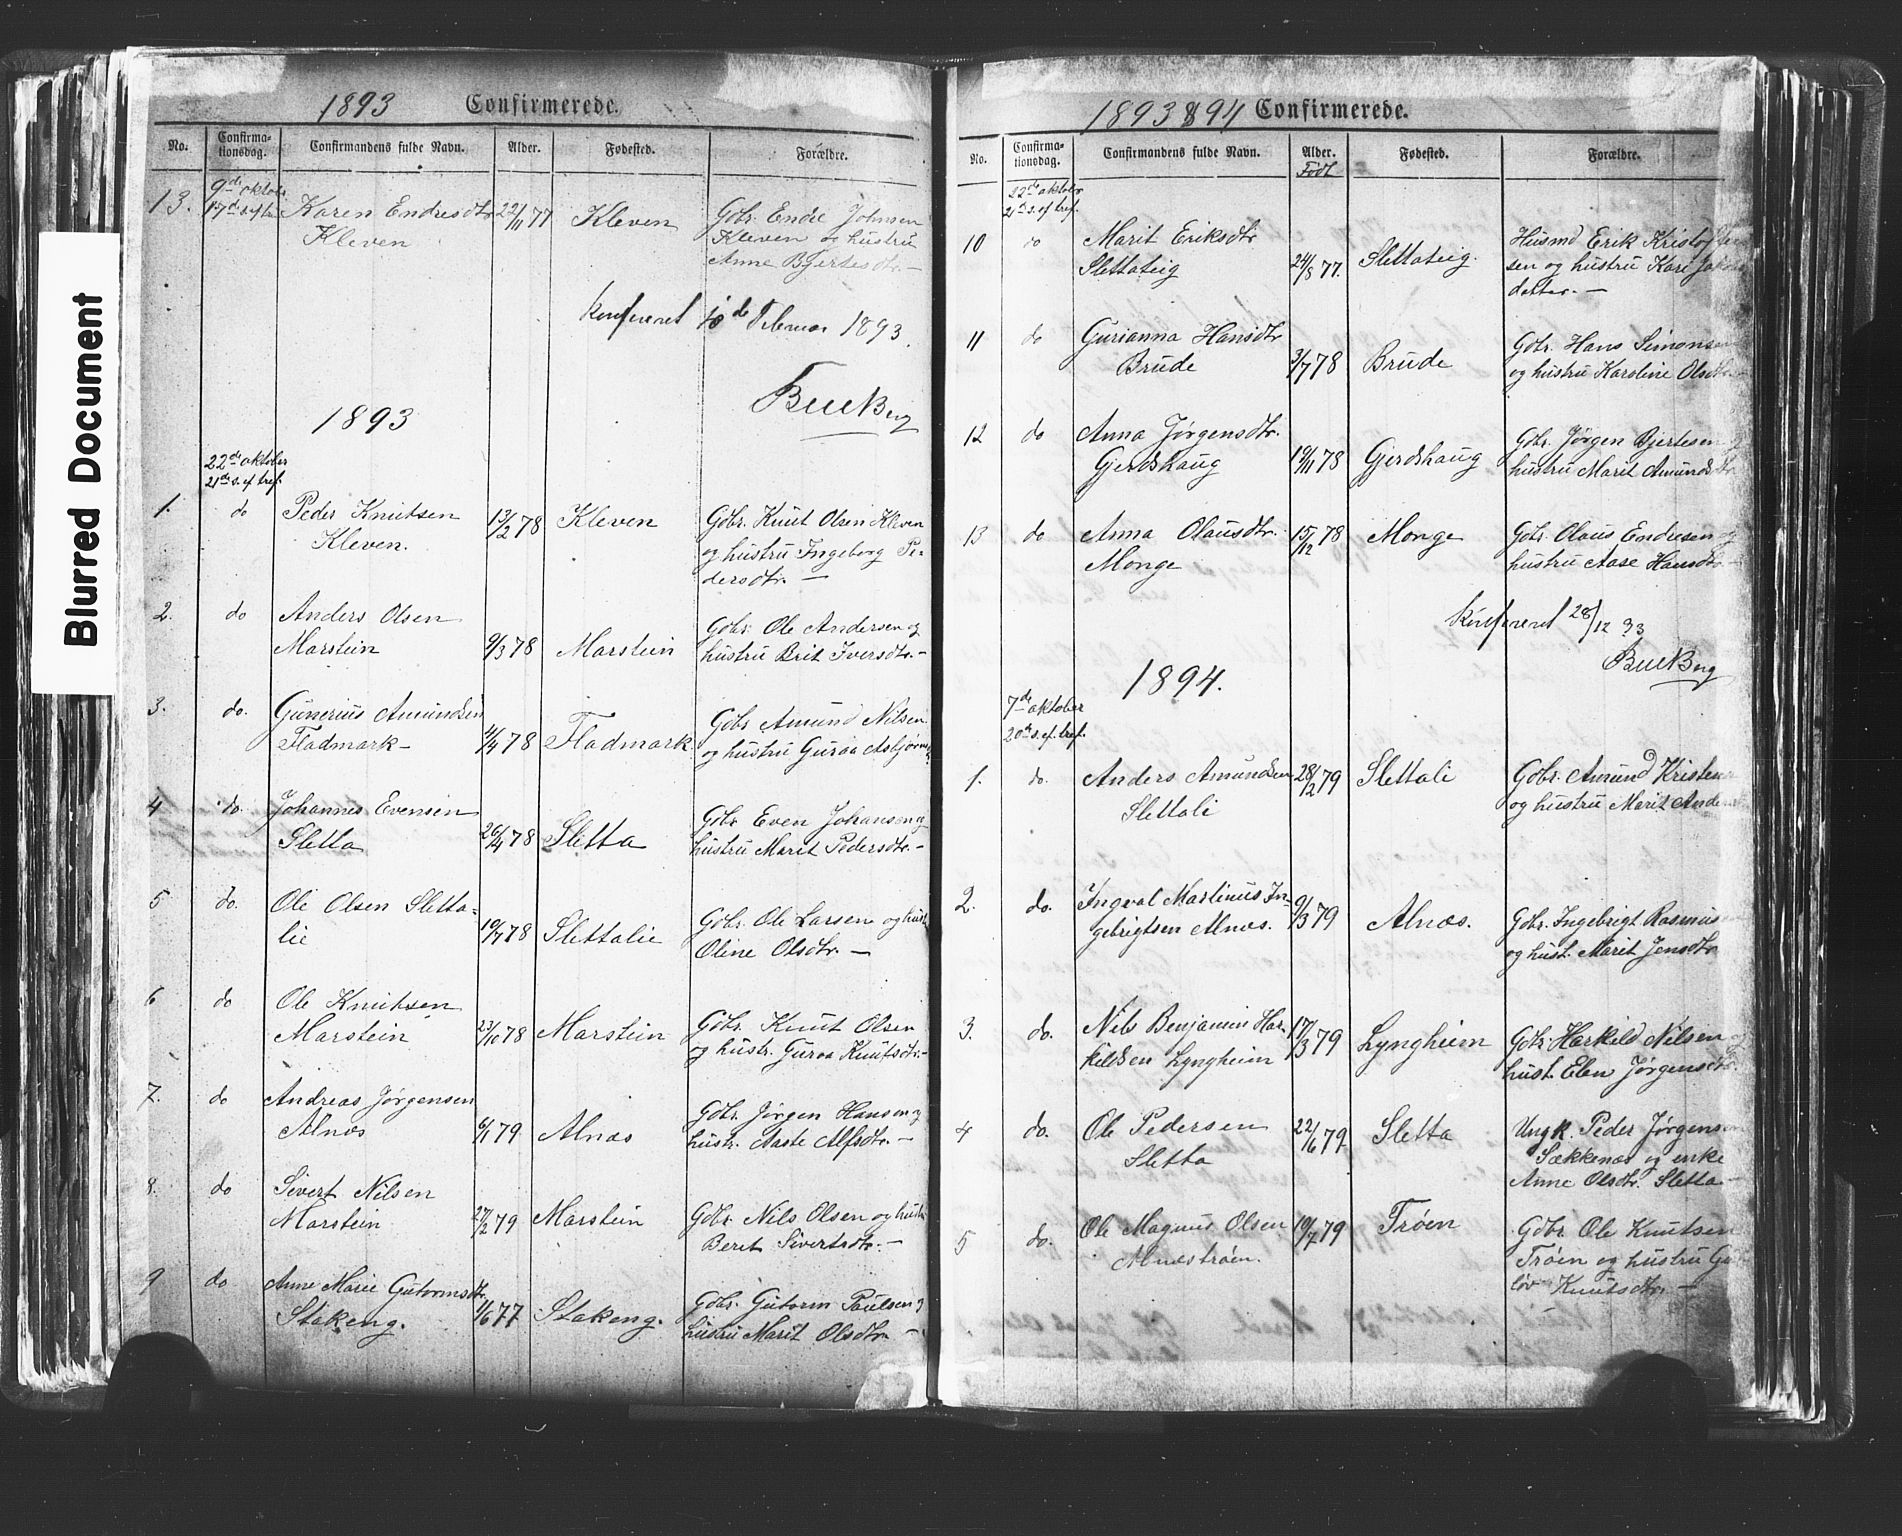 Blurred Document
1893 Confirmerede.
No. Confirma-tionsdag. Confirmandens fulde Navn. Alder. Fødested. Forældre.
9de oktobr
17de s. ef. tr.
13. Karen Endresdtr 22/11 77 Kleven Gdbr. Endre Johnsen
Kleven Kleven og hustru
Anne Bjertesdtr. —
Konfereret 18de Februar 1893.
BueBerg
1893
22de oktober
21de s. ef. tref.
1. do Peder Knutsen 13/2 78 Kleven Gdbr. Knut Olsen Kleven
Kleven. og hustru Ingeborg Pe-
dersdtr. —
2. do Anders Olsen Gdbr. Ole Andersen og
Marstein 9/3 78 Marstein hustru Brit Iversdtr. —
3. do. Gunerius Amundsen Gdbr Amund Nilsen
Fladmark — 4/4 78 Fladmark og hustru Guroa Asbjørns
4 do. Johannes Evensen Gdbr. Even Johansen og
Sletta 26/4 78 Sletta hustru Marit Pedersdtr. —
5 do. Ole Olsen Sletta- Gdbr. Ole Larsen og hust
lie 19/7 78 Slettalie Oline Olsdtr. —
6 do Ole Knutsen Gdbr. Knut Olsen
Marstein 23/10 78 Marstein og hustr. Guroa Knutsdtr. —
7. do Andreas Jørgensen Gdbr. Jørgen Hansen og
Alnæs 6/1 79 Alnæs hustr. Aaste Alfsdtr. —
8. do Sivert Nilsen
Marstein 27/2 79 Marstein Gdbr. Nils Olsen og hustr
Beret Sivertsdtr. —
9 do Anne Marie Gutormsdtr.
Stakeng. 1/6 77 Stakeng. Gdbr. Gutorm Paulsen og
hustru Marit Olsdtr. —
1893 & 94 Confirmerede.
No. Confirma-tionsdag. Confirmandens fulde Navn. Alder. Født Fødested. Forældre.
22de oktober
21de s. ef. tref.
10 do Marit Eriksdtr Husmd Erik Kristoffer
Slettateig 24/8 77. Slettateig. sen og hustru Kari Jakobs
datter. —
11 do Gurianna Hansdtr Gdbr. Hans Simonsen
Brude 3/7 78 Brude og hustru Karoline Olsdtr. —
12 do Anna Jørgensdtr. Gdbr. Jørgen Bjertesen
Gjerdshaug 19/11 78 Gjerdshaug hustru Marit Amundsdtr
13 do Anna Olausdtr. 15/12 78 Monge Gdbr. Olaus Endresen og
Monge hustru Aase Hansdtr. —
Konfereret 28/12 93
BueBerg
1894.
7de oktober
20de s. ef. tref.
1. do. Anders Amundsen 28/2 79 Slettali Gdbr. Amund Kristen
Slettali og hustru Marit Anders
2. do. Ingval Martinus In- 9/3 79 Alnæs. Gdbr. Ingebrigt Rasmus
gebrigtsen Alnæs. og hust. Marit Jensdtr
3. do. Nils Benjamin Har- 17/3 79 Lyngheim Gdbr. Harkild Nilsen og
kildsen Lyngheim hust. Elen Jørgensdtr.
4 do. Ole Pedersen 22/6 79 Sletta Ungk. Peder Jørgensen
Sletta Sækkenæs og enke
Anne Olsdtr. Sletta —
5 do. Ole Magnus Olsen 19/7 79 Trøen Gdbr. Ole Knutsen
Alnæstrøen. Trøen og hustru Gu
løv Knutsdtr. —